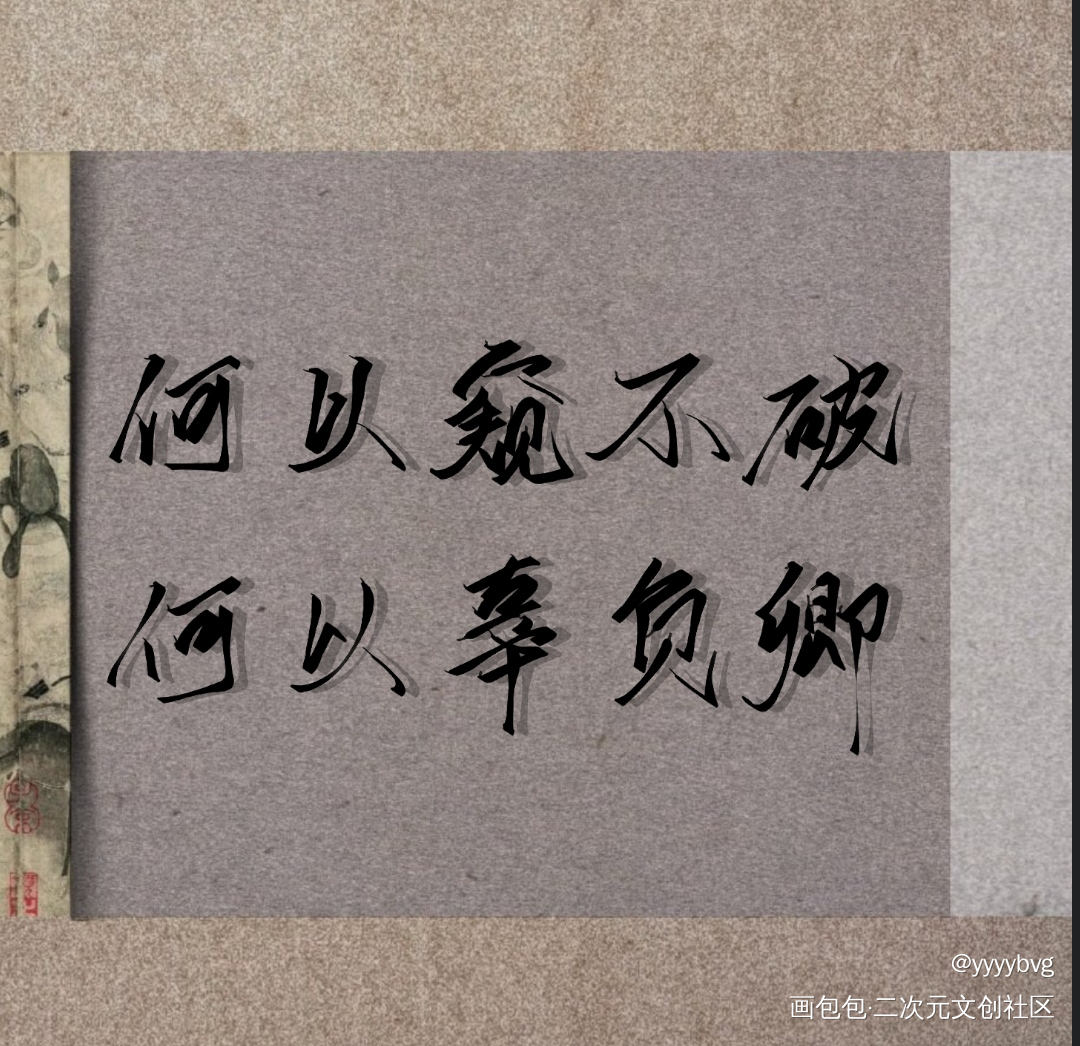 何以窥不破
何以辜负卿
@yyyybvg
画包包·二次元文创社区